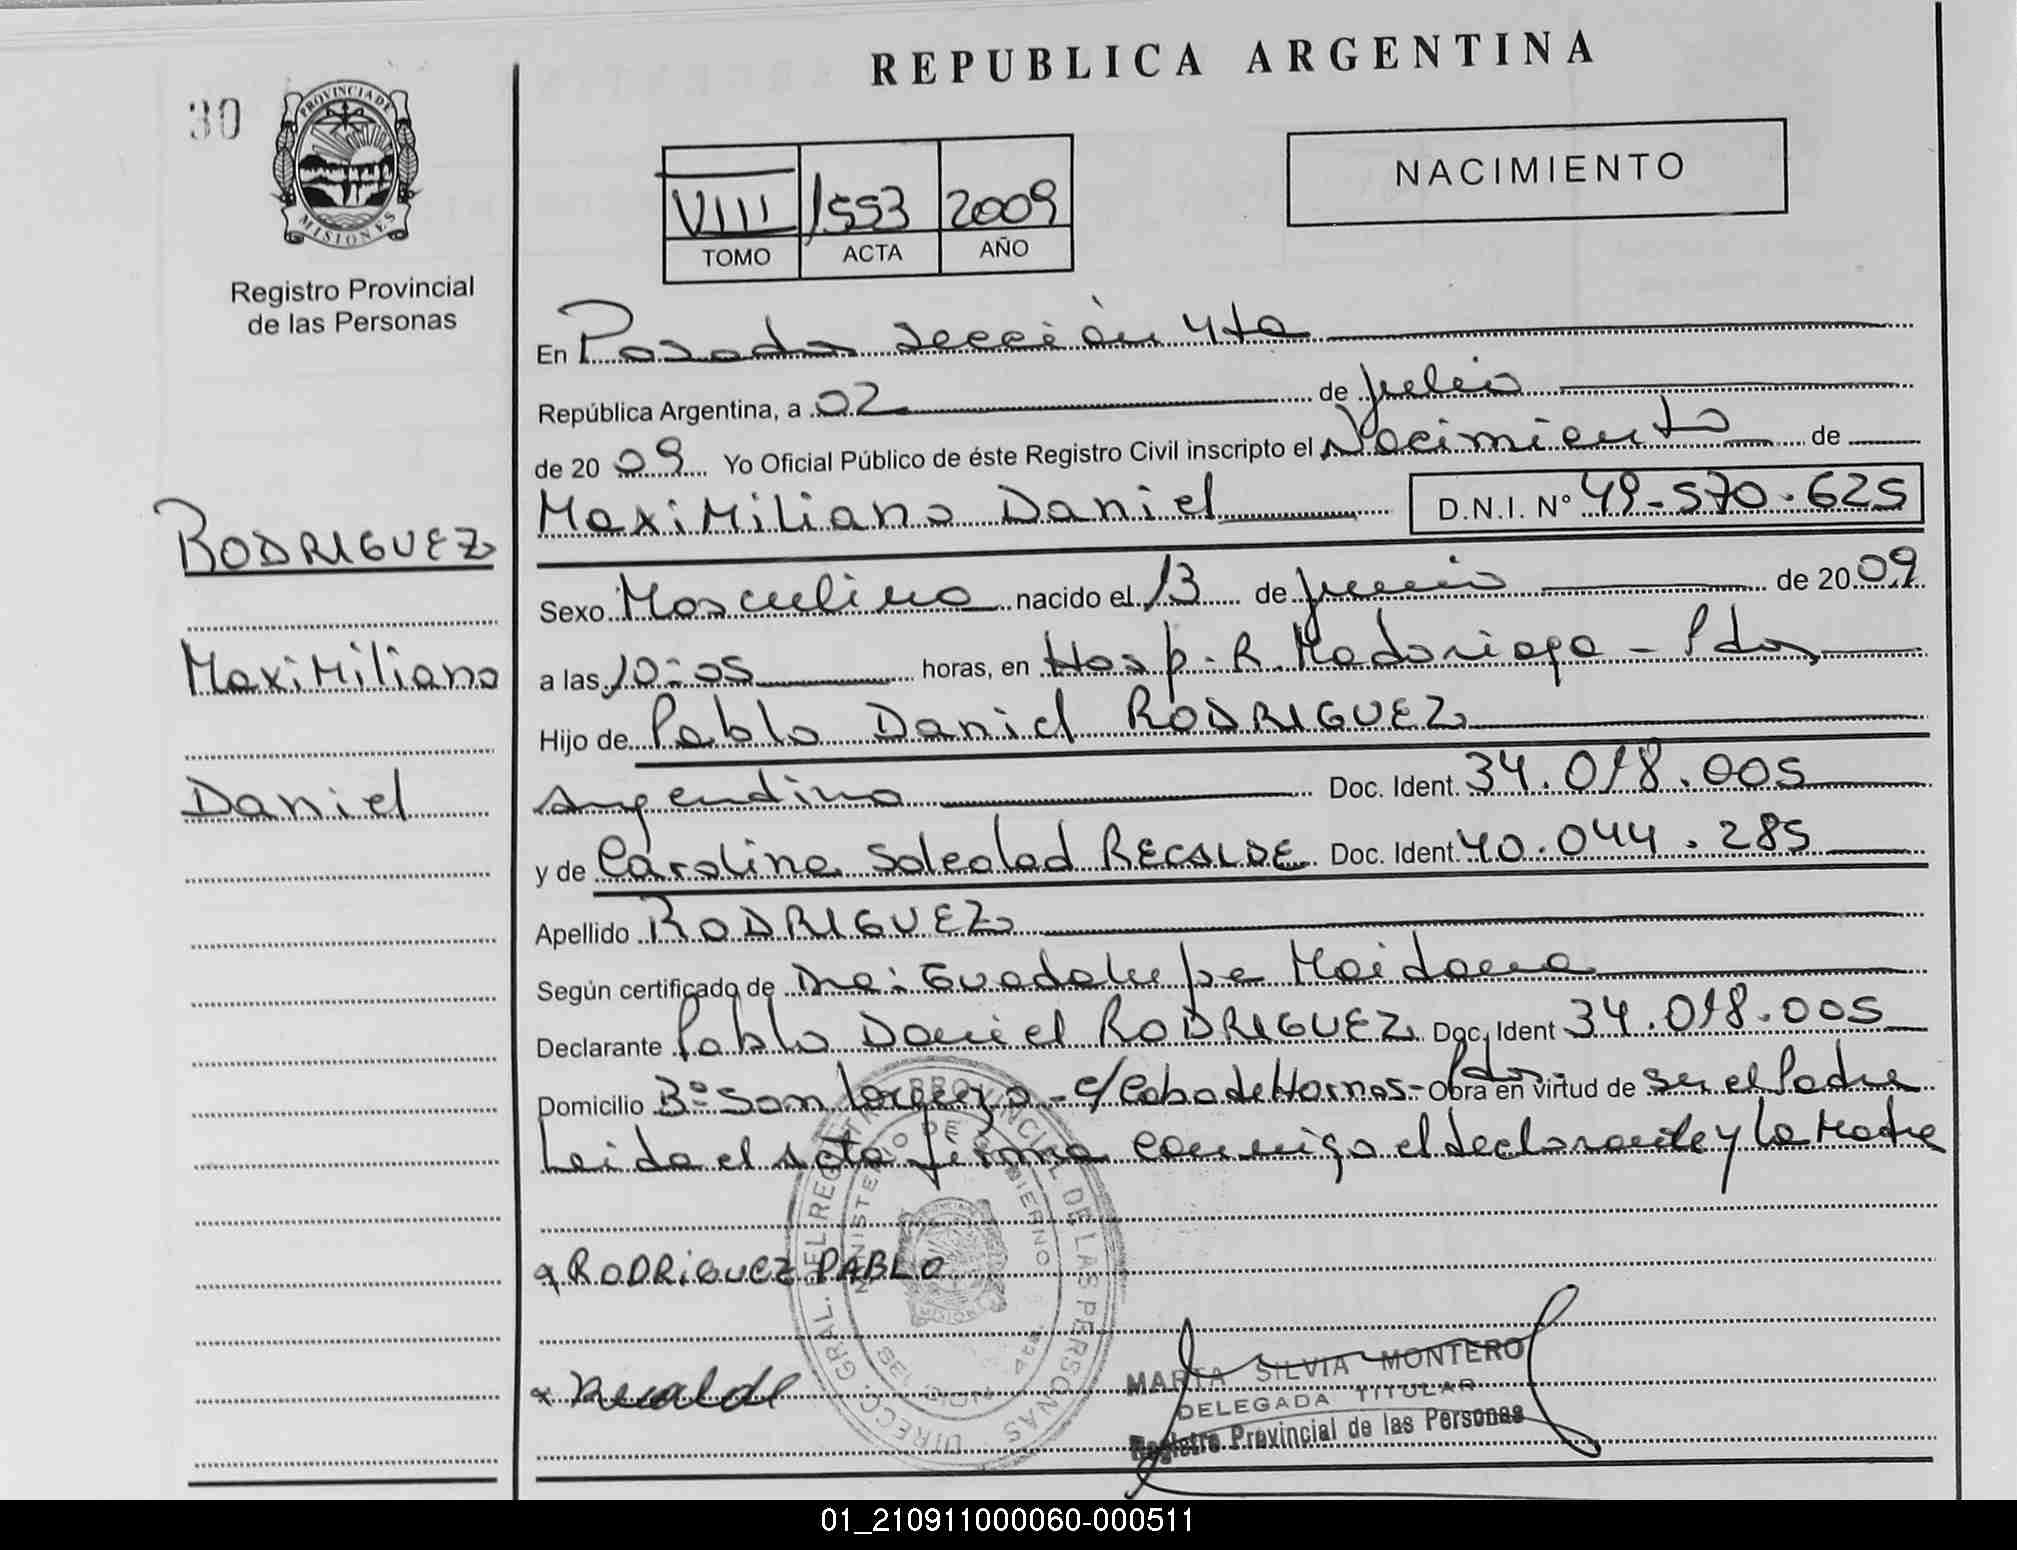 REPUBLICA ARGENTINA
30
PROVINCIA DE
MISIONES
Registro Provincial
de las Personas
VIII 1553 2009
TOMO ACTA AÑO
NACIMIENTO
En Posadas Sección 4ta
República Argentina, a 02 de Julio
de 2009 Yo Oficial Público de éste Registro Civil inscripto el Nacimiento de
Maximiliano Daniel D.N.I. N° 49-570.625
RODRIGUEZ
Maximiliano
Daniel
Sexo Masculino nacido el 13 de Junio de 2009
a las 10:05 horas, en Hosp. R. Madariaga - Pdas
Hijo de Pablo Daniel RODRIGUEZ
Argentino Doc. Ident. 34.018.005
y de Carolina Soledad RECALDE Doc. Ident. 40.044.285
Apellido RODRIGUEZ
Según certificado de Dra: Guadalupe Maidana
Declarante Pablo Daniel RODRIGUEZ Doc. Ident 34.018.005
Domicilio B° San Lorenzo - c/ Cabo de Hornos - Pdas. Obra en virtud de ser el Padre
Leida el acta firma conmigo el declarante y la Madre
x RODRIGUEZ PABLO
x Recalde
DIRECC. GRAL. DEL REGISTRO PROVINCIAL DE LAS PERSONAS
MINISTERIO DE GOBIERNO
MARTA SILVIA MONTERO
DELEGADA TITULAR
Registro Provincial de las Personas
01_210911000060-000511